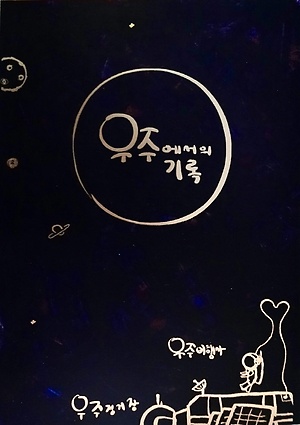 우주에서의
기록
우주여행사
우주정거장